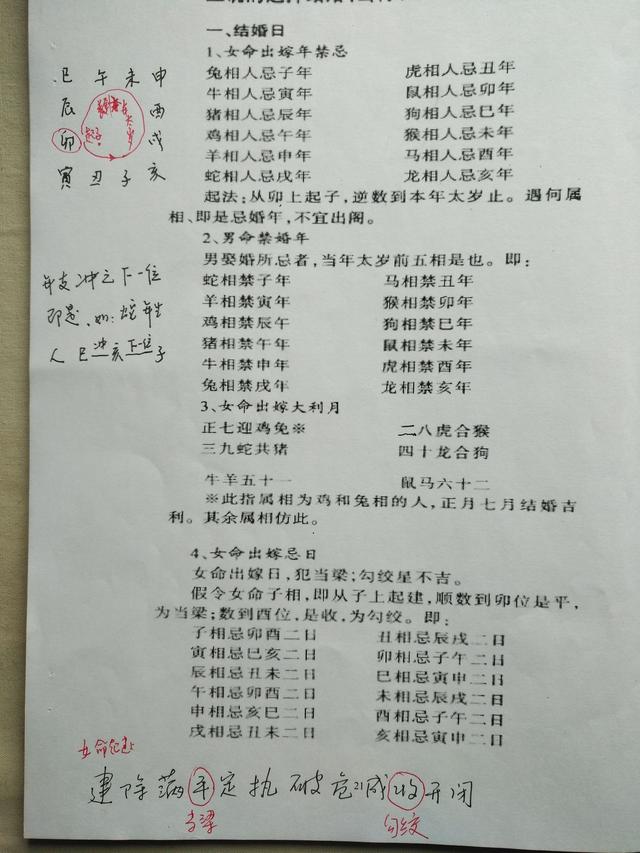 一、结婚日
1、女命出嫁年禁忌
兔相人忌子年 虎相人忌丑年
牛相人忌寅年 鼠相人忌卯年
猪相人忌辰年 狗相人忌巳年
鸡相人忌午年 猴相人忌未年
羊相人忌申年 马相人忌酉年
蛇相人忌戌年 龙相人忌亥年
起法：从卯上起子，逆数到本年太岁止。遇何属
相、即是忌婚年，不宜出阁。
2、男命禁婚年
男娶婚所忌者，当年太岁前五相是也。即：
蛇相禁子年 马相禁丑年
羊相禁寅年 猴相禁卯年
鸡相禁辰午 狗相禁巳年
猪相禁午年 鼠相禁未年
牛相禁申年 虎相禁酉年
兔相禁戌年 龙相禁亥年
3、女命出嫁大利月
正七迎鸡兔※ 二八虎合猴
三九蛇共猪 四十龙合狗
牛羊五十一 鼠马六十二
※此指属相为鸡和兔相的人，正月七月结婚吉
利。其余属相仿此。
4、女命出嫁忌日
女命出嫁日，犯当梁；勾绞星不吉。
假令女命子相，即从子上起建，顺数到卯位是平，
为当梁；数到酉位，是收，为勾绞。即：
子相忌卯酉二日 丑相忌辰戌二日
寅相忌巳亥二日 卯相忌子午二日
辰相忌丑未二日 巳相忌寅申二日
午相忌卯酉二日 未相忌辰戌二日
申相忌亥巳二日 酉相忌子午二日
戌相忌丑未二日 亥相忌寅申二日
巳 午 未 申
辰 酉
卯 起子 太岁 戌
寅 丑 子 亥
年支冲之下一位
即是、如：蛇年生
人 巳冲亥下一位子
女命起建
建 除 满 平 定 执 破 危 成 收 开 闭
当梁 勾绞